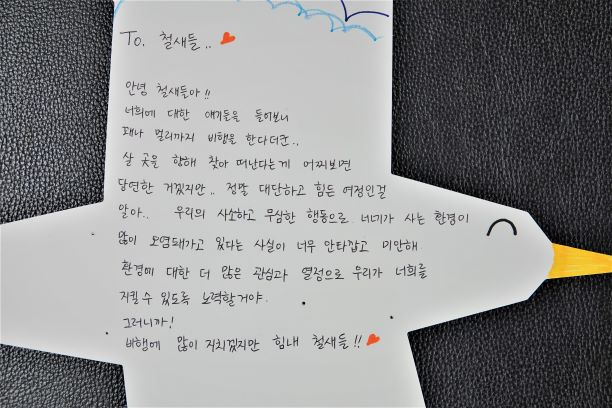 To. 철새들..
안녕 철새들아!!
너희에 대한 얘기들을 들어보니
꽤나 멀리까지 비행을 한다더군..
살 곳을 향해 찾아 떠난다는게 어찌보면
당연한 거겠지만.. 정말 대단하고 힘든 여정인걸
알아.. 우리의 사소하고 무심한 행동으로 너네가 사는 환경이
많이 오염돼가고 있다는 사실이 너무 안타깝고 미안해
환경에 대한 더 많은 관심과 열정으로 우리가 너희를
지킬 수 있도록 노력할거야.
그러니까!
비행에 많이 지치겠지만 힘내 철새들!!